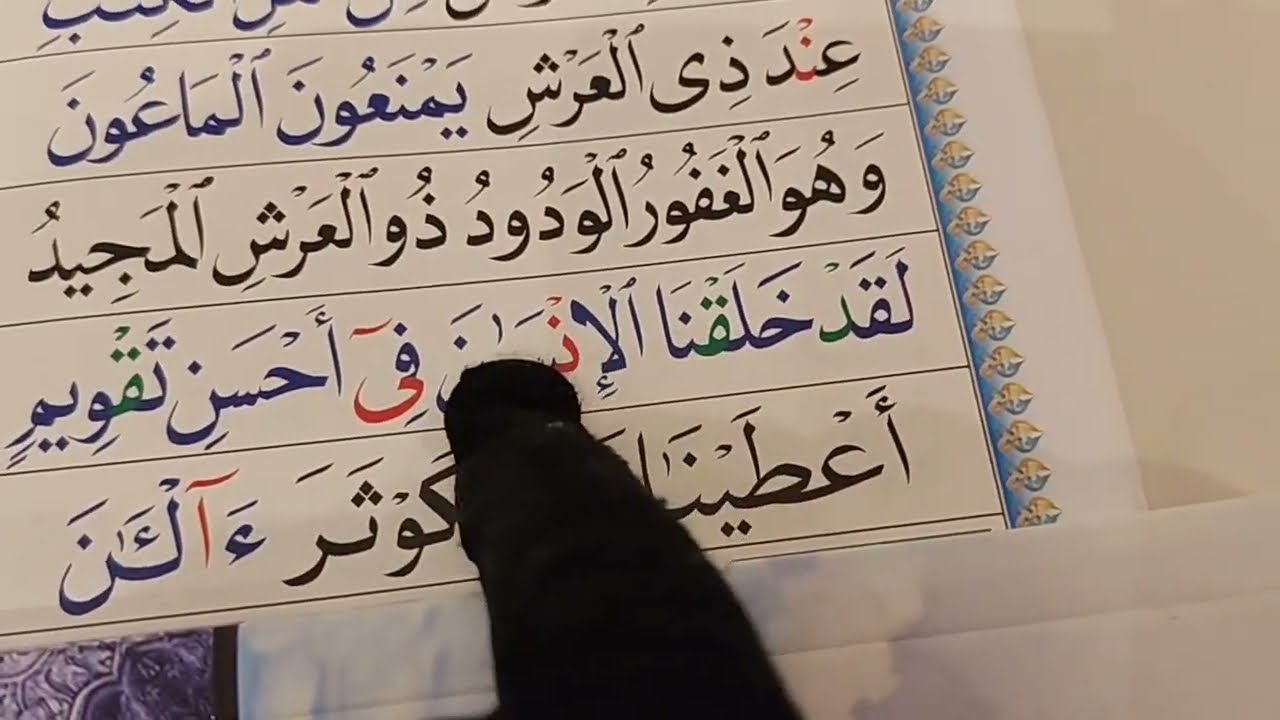 عِنْدَ ذِى ٱلْعَرْشِ يَمْنَعُونَ ٱلْمَاعُونَ
وَهُوَ ٱلْغَفُورُ ٱلْوَدُودُ ذُو ٱلْعَرْشِ ٱلْمَجِيدُ
لَقَدْ خَلَقْنَا ٱلْإِنْسَٰنَ فِىٓ أَحْسَنِ تَقْوِيمٍ
أَعْطَيْنَٰ كَوْثَرَ ءَآلْـَٰٔنَ